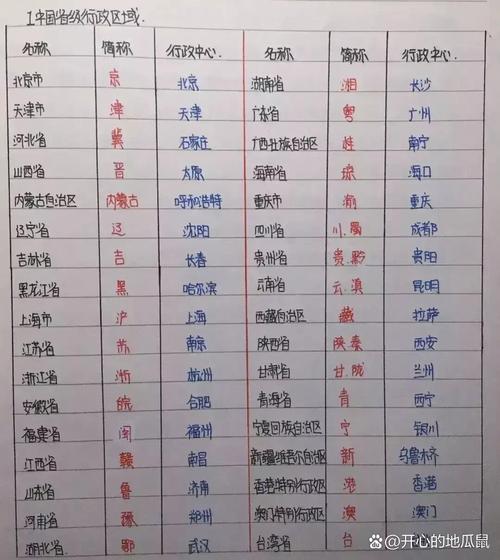 1.中国省级行政区域.
名称 简称 行政中心 名称 简称 行政中心
北京市 京 北京 湖南省 湘 长沙
天津市 津 天津 广东省 粤 广州
河北省 冀 石家庄 广西壮族自治区 桂 南宁
山西省 晋 太原 海南省 琼 海口
内蒙古自治区 内蒙古 呼和浩特 重庆市 渝 重庆
辽宁省 辽 沈阳 四川省 川.蜀 成都
吉林省 吉 长春 贵州省 贵.黔 贵阳
黑龙江省 黑 哈尔滨 云南省 云.滇 昆明
上海市 沪 上海 西藏自治区 藏 拉萨
江苏省 苏 南京 陕西省 陕.秦 西安
浙江省 浙 杭州 甘肃省 甘.陇 兰州
安徽省 皖 合肥 青海省 青 西宁
福建省 闽 福州 宁夏回族自治区 宁 银川
江西省 赣 南昌 新疆维吾尔自治区 新 乌鲁木齐
山东省 鲁 济南 香港特别行政区 港 香港
河南省 豫 郑州 澳门特别行政区 澳 澳门
湖北省 鄂 武汉 台湾省 台
@开心的地瓜鼠